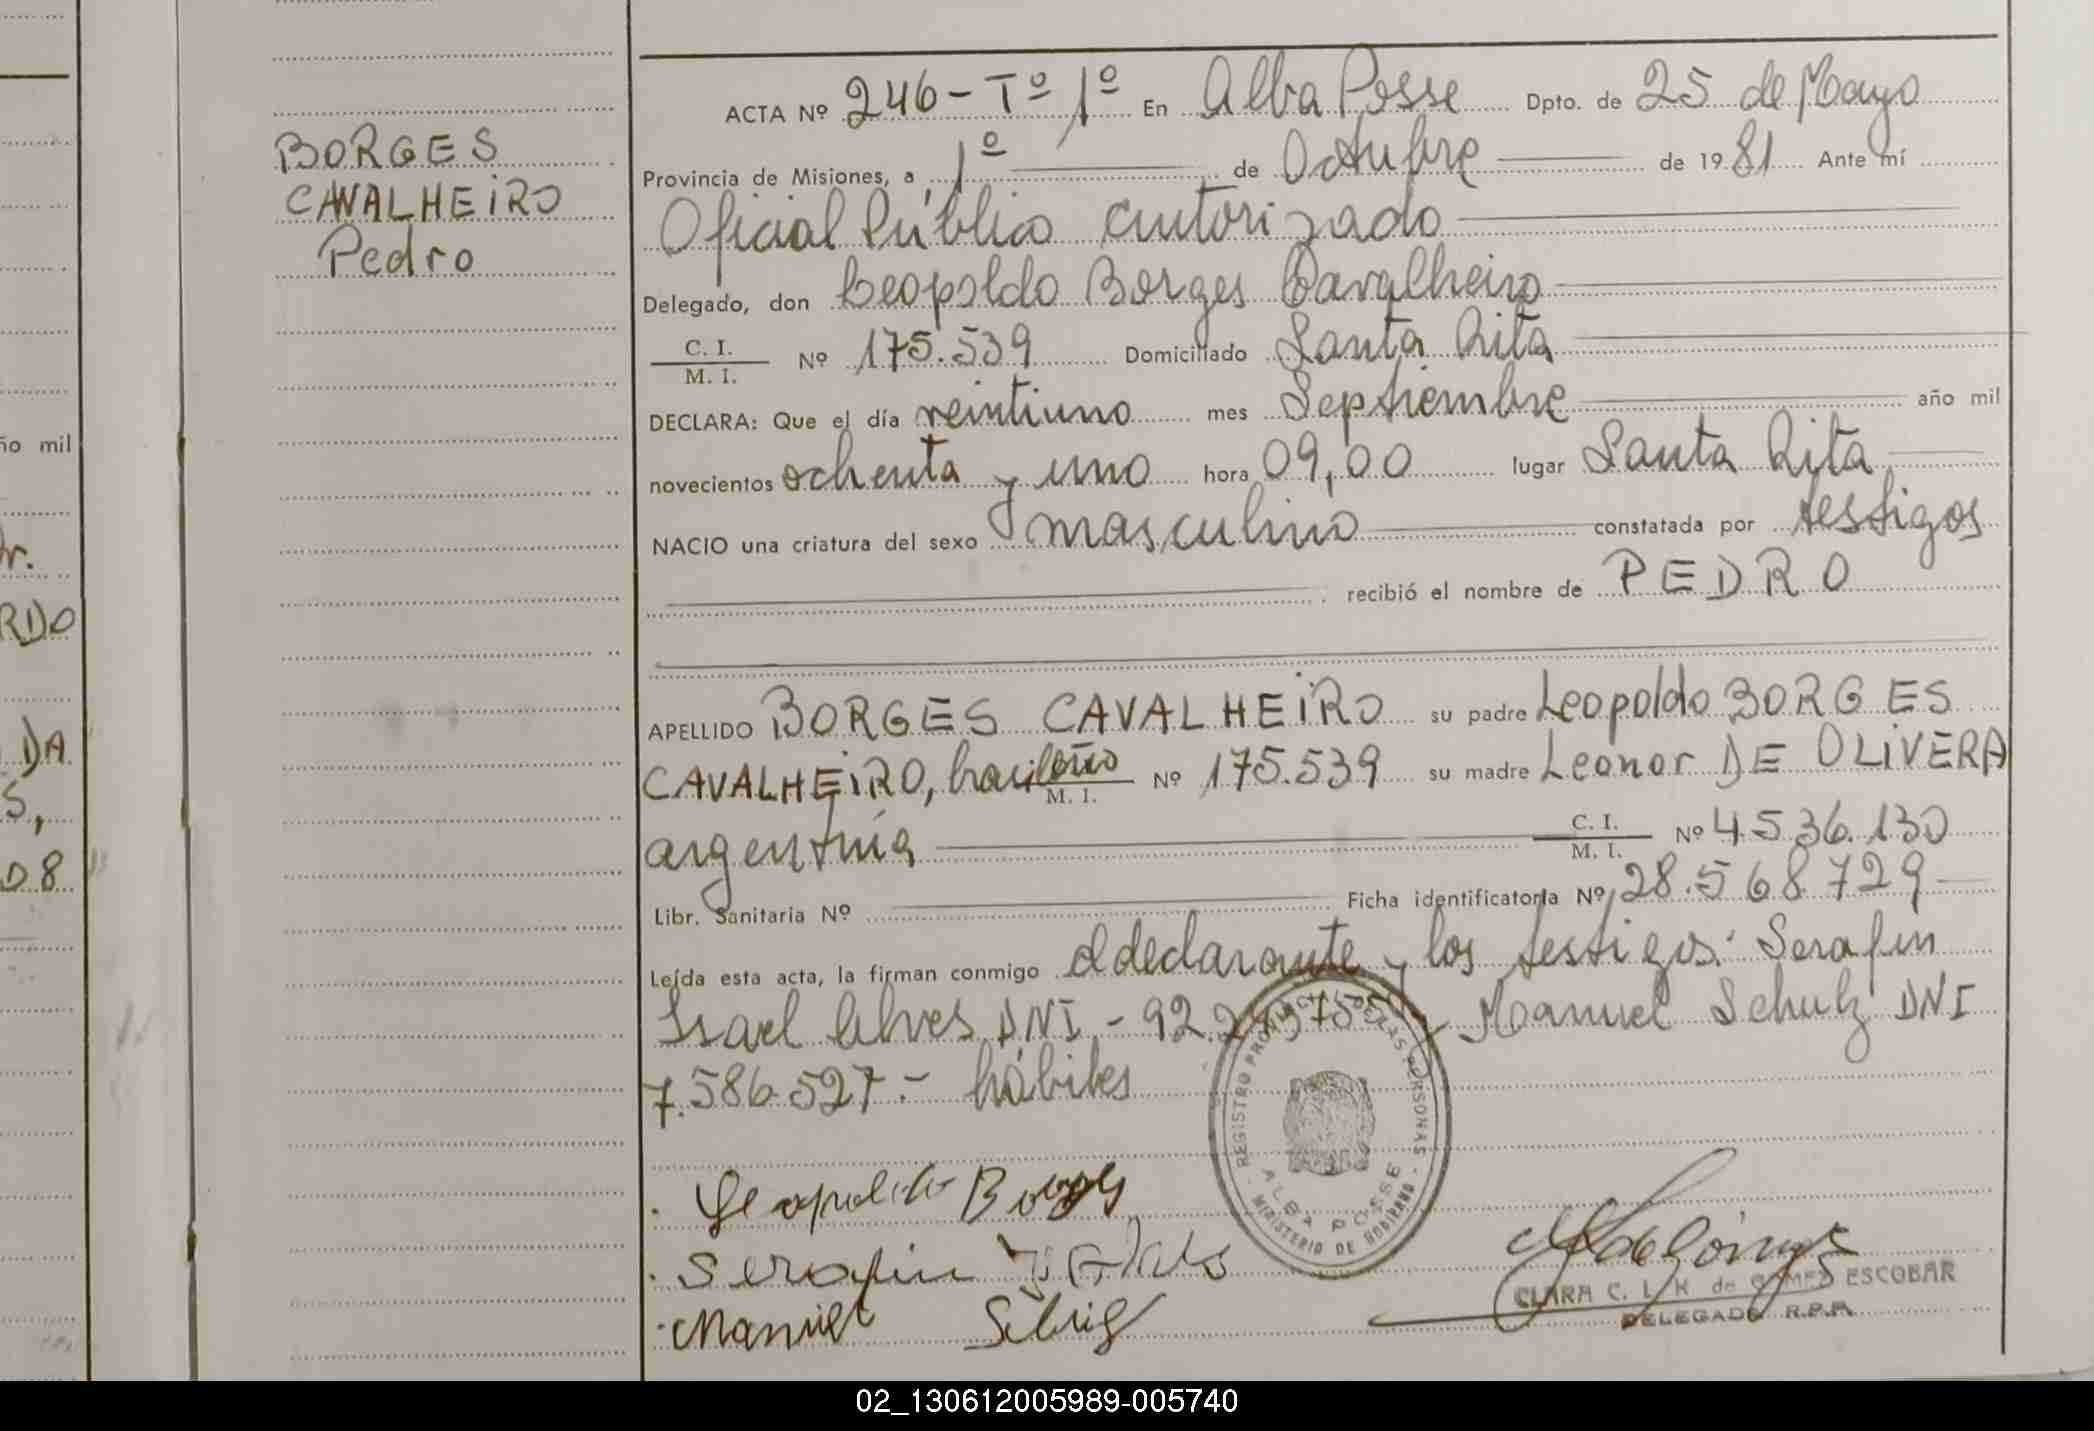 ño mil
r.
RDO
DA
S,
D 8
BORGES
CAVALHEIRO
Pedro
ACTA Nº 246 - Tº 1º En Alba Posse Dpto. de 25 de Mayo
Provincia de Misiones, a 1º de Octubre de 1981 Ante mí
Oficial Público autorizado
Delegado, don Leopoldo Borges Cavalheiro
C. I.
M. I. Nº 175.539 Domiciliado Santa Rita
DECLARA: Que el día veintiuno mes Septiembre año mil
novecientos ochenta y uno hora 09,00 lugar Santa Rita
NACIO una criatura del sexo masculino constatada por testigos
recibió el nombre de PEDRO
APELLIDO BORGES CAVALHEIRO su padre Leopoldo BORGES
CAVALHEIRO, brasileño M. I. Nº 175.539 su madre Leonor DE OLIVERA
argentina C. I. M. I. Nº 4.536.130
Libr. Sanitaria Nº Ficha identificatoria Nº 28.568.729
Leída esta acta, la firman conmigo el declarante y los testigos: Serafin
Israel Alves DNI - 92. Manuel Schulz DNI
7.586.527 - hábiles
REGISTRO PROVINCIAL DE LAS PERSONAS
ALBA POSSE
MINISTERIO DE GOBIERNO
Leopoldo Borges
Serafin
Manuel
CLARA C. L. K. de GOMEZ ESCOBAR
DELEGADO R.P.P.
02_130612005989-005740